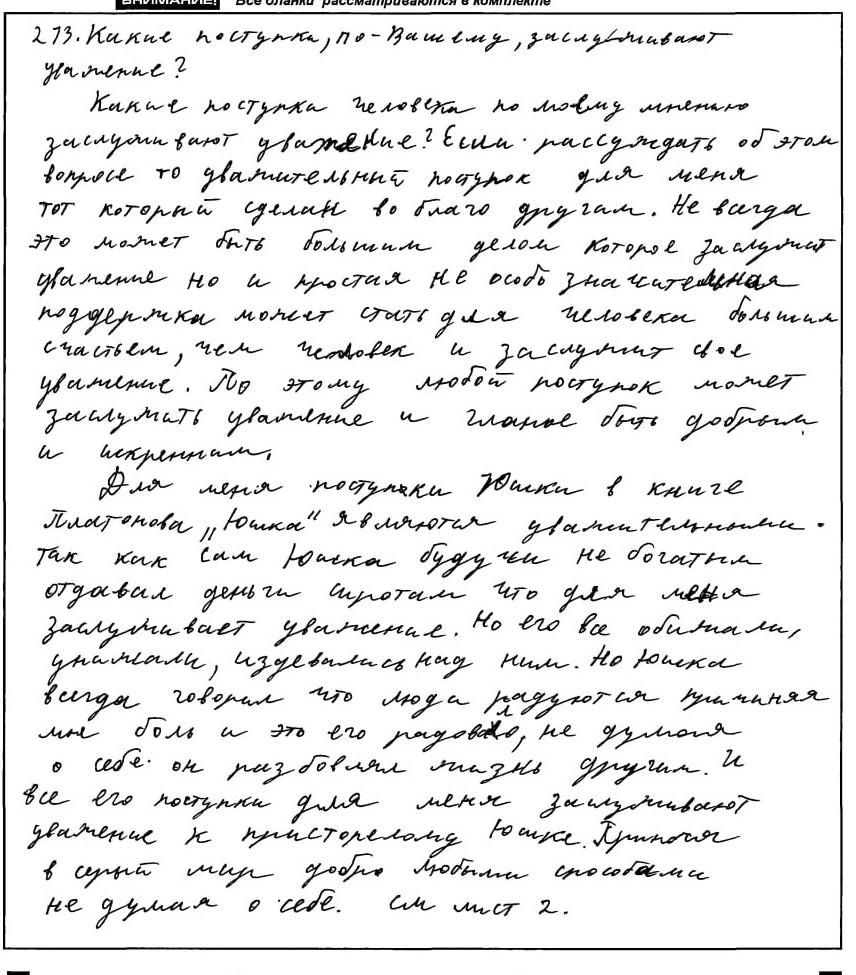 ВНИМАНИЕ! Все бланки рассматриваются в комплекте
213. Какие поступки, по-Вашему, заслуживают
уважение?
Какие поступки человека по моему мнению
заслуживают уважение? Если рассуждать об этом
вопросе то уважительный поступок для меня
тот который сделан во благо другим. Не всегда
это может быть большим делом которое заслужит
уважение но и простая не особо значительная
поддержка может стать для человека большим
счастьем, чем человек и заслужит свое
уважение. По этому любой поступок может
заслужать уважение и гланое быть добрым
и искренним.
Для меня поступки Юшки в книге
Платонова „Юшка" являются уважительными.
так как сам Юшка будучи не богатым
отдавал деньги сиротам что для меня
заслуживает уважение. Но его все обижали,
унижали, издевались над ним. Но Юшка
всегда говорил что люди радуются причиняя
мне боль и это его радовало, не думая
о себе он разбовлял жизнь другим. И
все его поступки для меня заслуживают
уважение к присторелому Юшке. Принося
в серый мир добро любыми способами
не думая о себе. см лист 2.